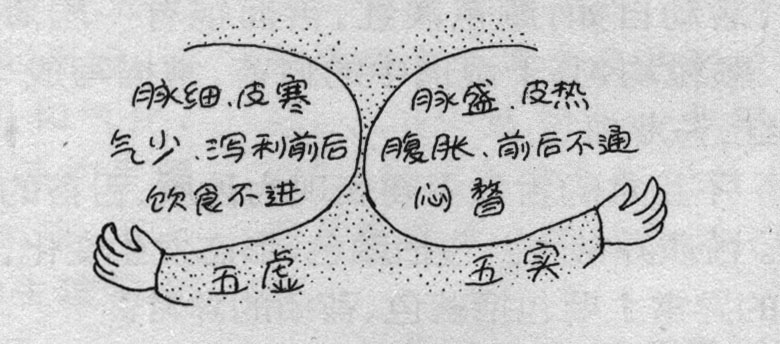 脉细、皮寒
气少、泻利前后
饮食不进
五虚
脉盛、皮热
腹胀、前后不通
闷瞀
五实